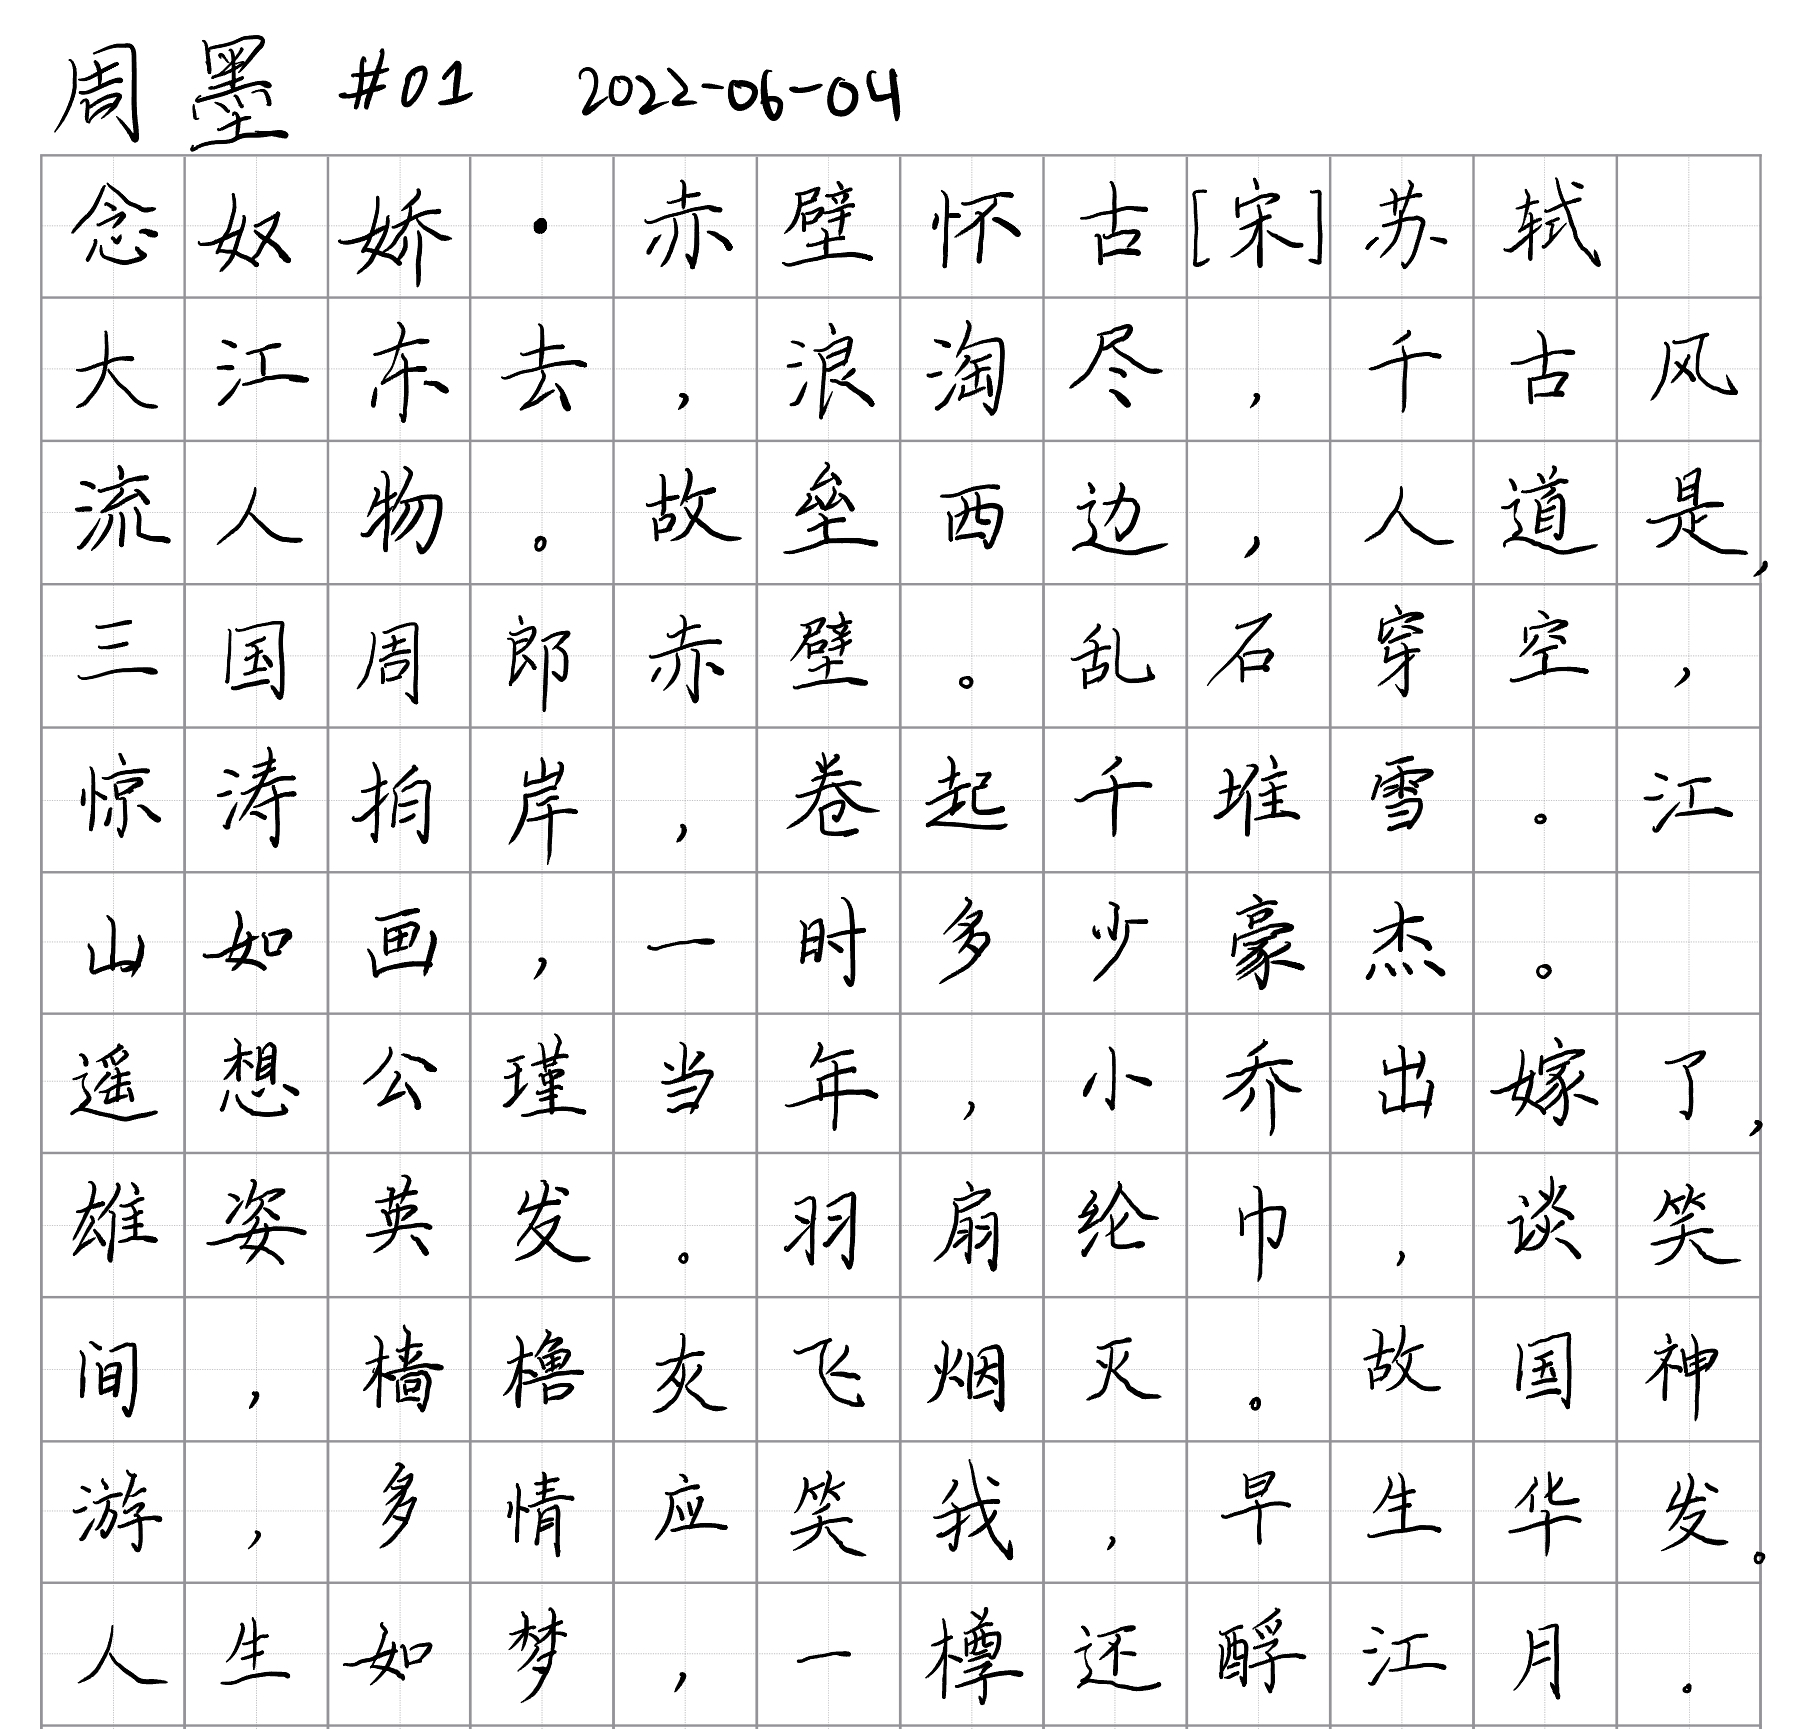 周墨 #01 2022-06-04
念奴娇·赤壁怀古[宋]苏轼
大江东去，浪淘尽，千古风
流人物。故垒西边，人道是，
三国周郎赤壁。乱石穿空，
惊涛拍岸，卷起千堆雪。江
山如画，一时多少豪杰。
遥想公瑾当年，小乔出嫁了，
雄姿英发。羽扇纶巾，谈笑
间，樯橹灰飞烟灭。故国神
游，多情应笑我，早生华发。
人生如梦，一樽还酹江月.